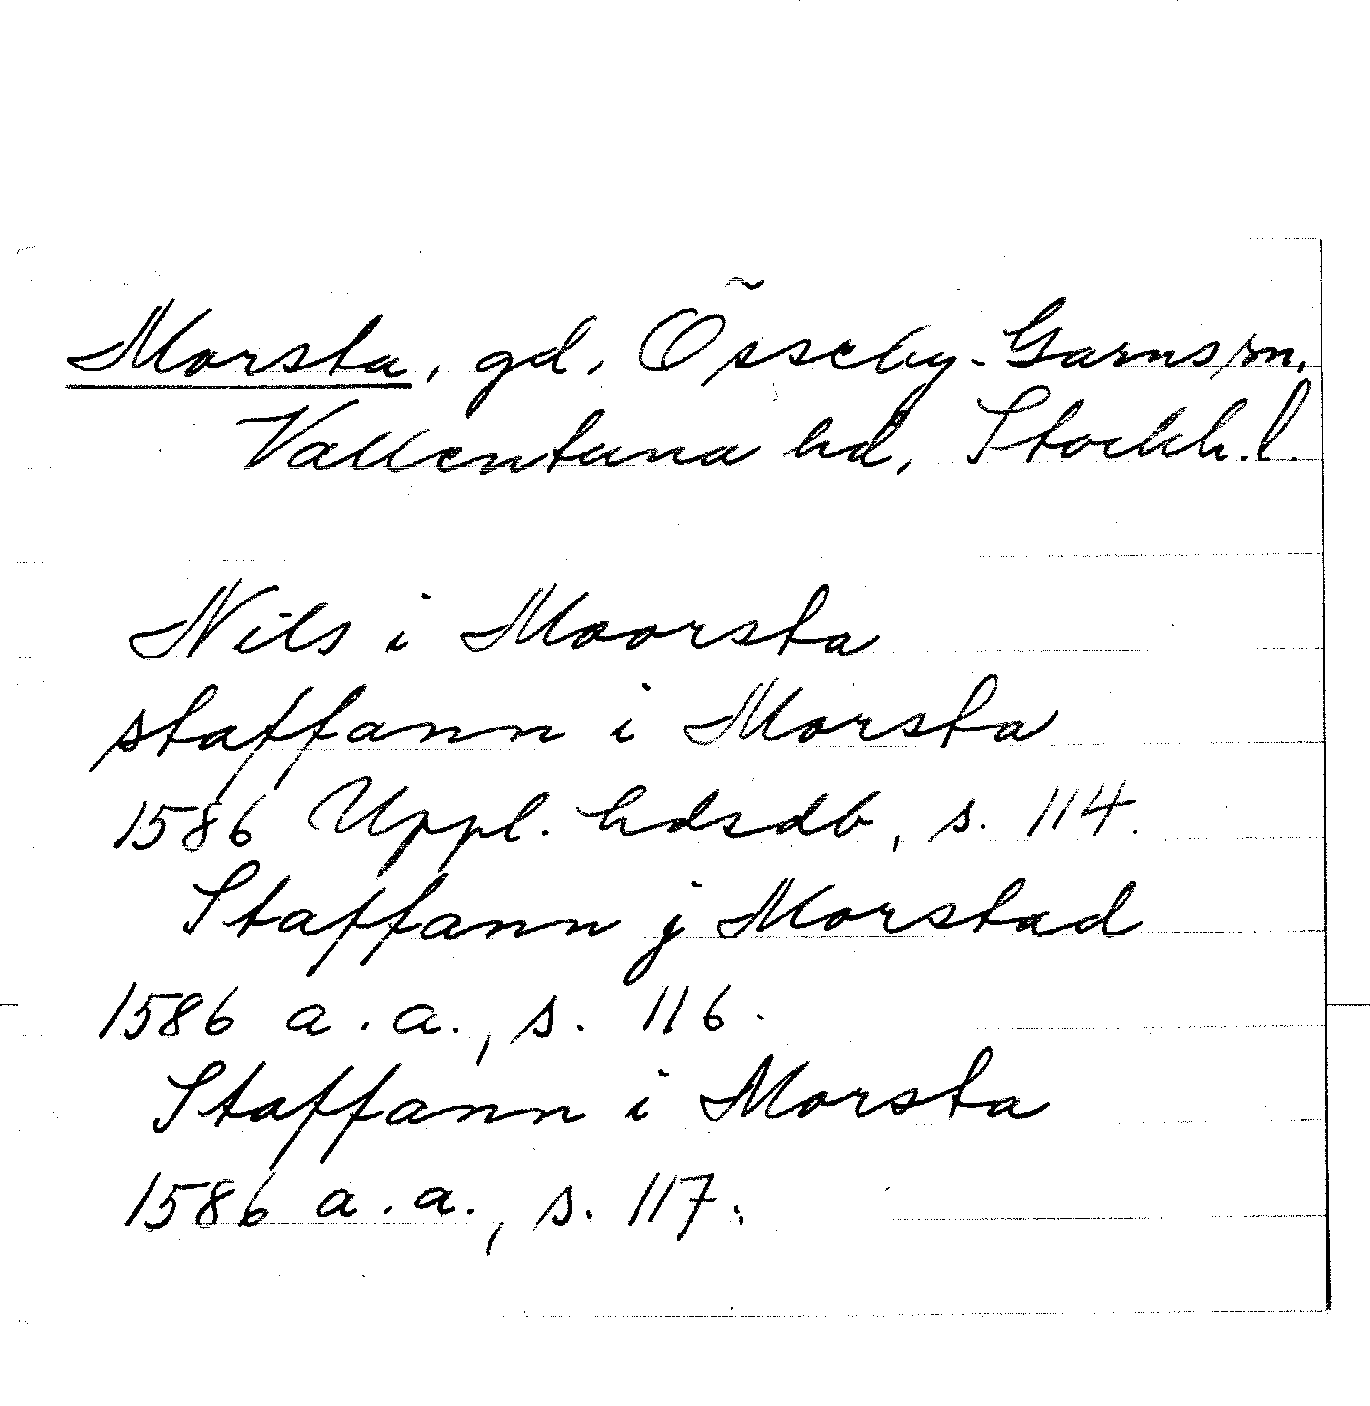 Morsta, gd, Össeby-Garns sn.
Vallentuna hd, Stockh.l.
Nils i Moorsta
staffann i Morsta
1586 Uppl. hdsdb, s. 114.
Staffann j Morstad
1586 a.a., s. 116.
Staffann i Morsta
1586 a.a., s. 117.